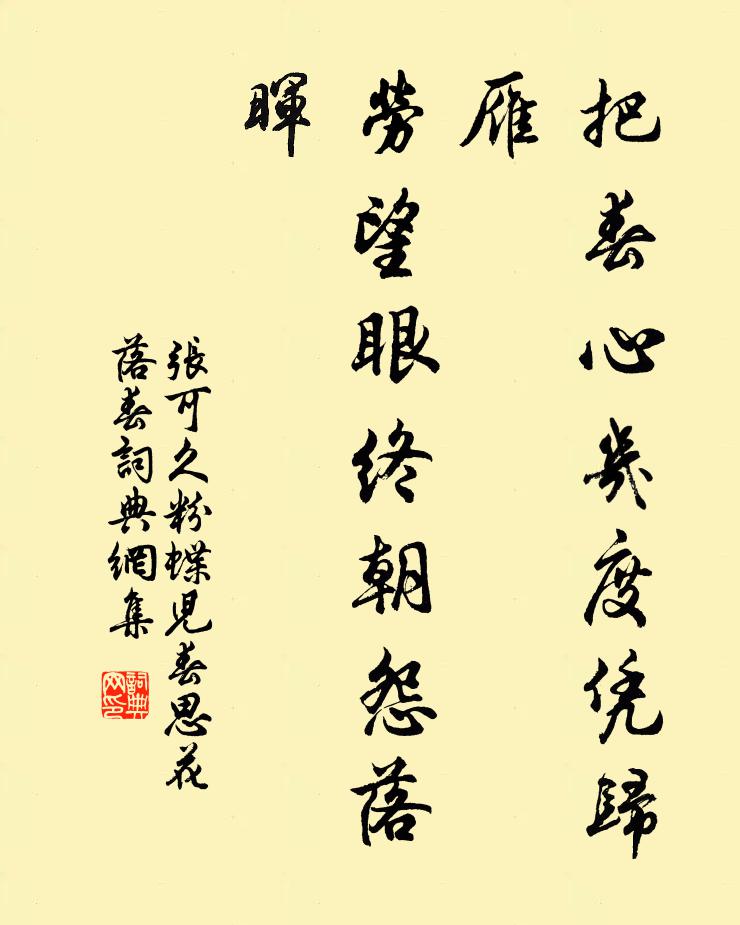 把春心幾度凭歸
雁
勞望眼終朝怨落
暉
張可久粉蝶兒春思花
落春詞典網集
詞典
网印